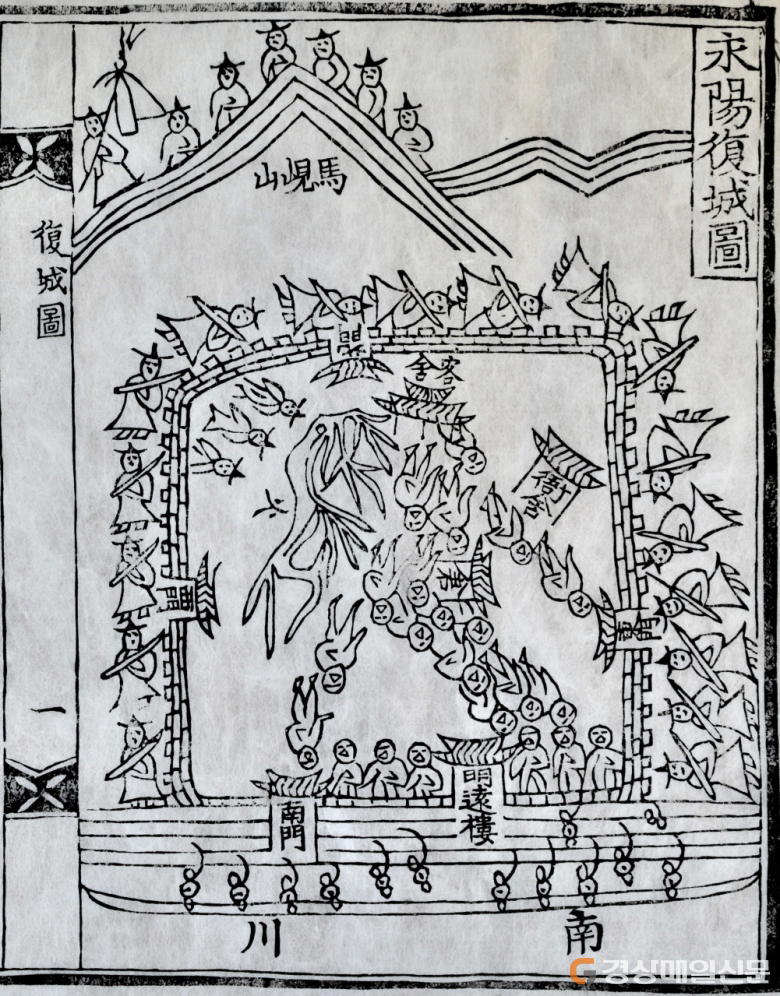 永陽復城圖
馬峴山
復城圖
客舍
衙舍
西門
東門
明遠樓
南門
一
南川
경상매일신문